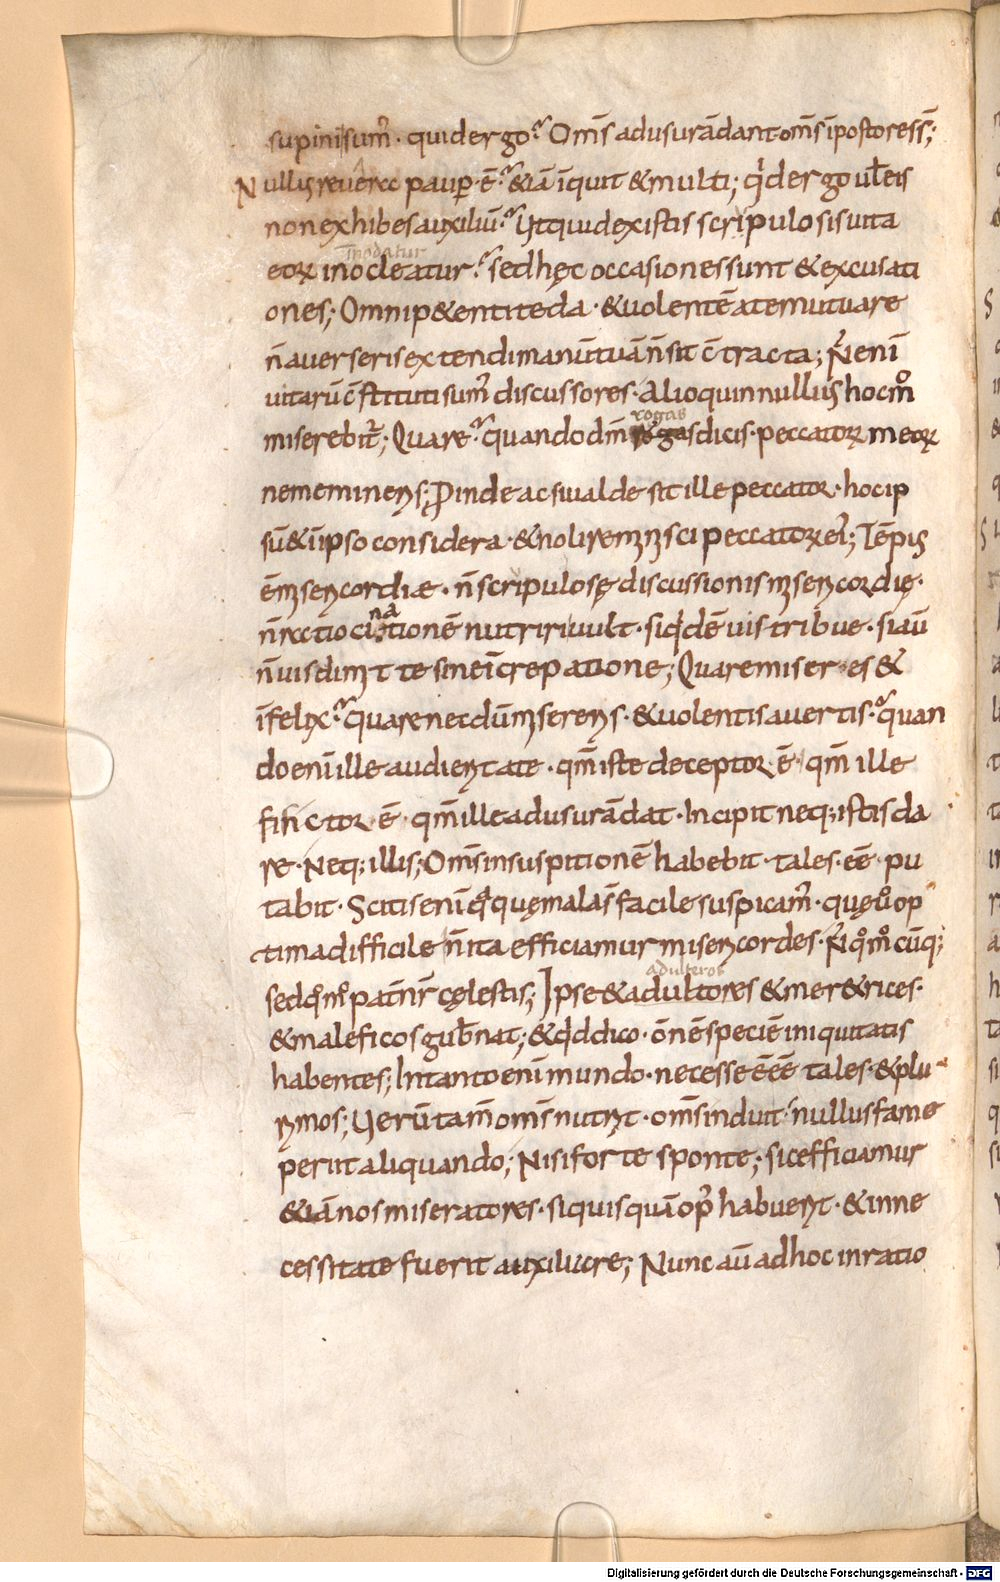 supini sum̄. quid ergo? Om̄s adusurādant om̄s īpostores s̄;
Nullus revera paup̱ ē? &iā īquit & multi; q̇d ergo ul̄ eis
non exhibes auxiliū? Ut quid existis scripulosis uita
eoꝝ inocleatur? sed hęc occasiones sunt & excusati
īnodatur
ones; Omni p&enti te da. & uolentē a te mutuare
n̄ auerseris extendi manū tuā n̄ sit c̄tracta; N̄ enī
uitarū c̄stituti sum̄ discussores. Alioquin nullius hoc m̊
miserebit̄; Quare? quando dm̄ rogas dicis. peccatoꝝ meoꝝ
rogas
ne memineris; Proinde ac si ualde sit ille peccator. hoc ip
sū & ī ipso considera. & noli reminisci peccatoꝝ ei᾽; Tēpus
ē misericordiæ. n̄ scripulosę discussionis misericordię.
n̄ ratiocinationē nutriri uult. si qd dē uis tribue. si aū
na
n̄ uis dimitte sine īcrepatione; Quare miser es &
īfelix? quare nec dū misereris. & uolentis auertis? quan
do enī ille audierit a te. qm̄ iste deceptor ē qm̄ ille
fictor ē. qm̄ ille adusurādat. Incipit neq; istis da
re. Neq; illis; Om̄s in suspitionē habebit. tales. ēē. pu
tabit. Scitis enī qd quę mala s̄ facile suspicam̄. quę uo op
tima difficile n̄ ita efficiamur misericordes. N̄ qm̊ cūq;
sed qm̊ pat̄ nr̄ cęlestis; Ipse & adultores & mer&rices.
adulteros
& maleficos gub̄nat; & qd dico. ōnē speciē iniquitatis
habentes; In tanto enī mundo. necesse ē ēē tales. & plu
rimos; Uerūtam̄ om̄s nutrit. om̄s induit. nullus fame
periit aliquando; Nisi forte sponte; sic efficiamur
& iā nos miseratores. si quisquā op̄ habuerit. & in ne
cessitate fuerit auxiliare; Nunc aū ad hoc in ratio
Digitalisierung gefördert durch die Deutsche Forschungsgemeinschaft - DFG